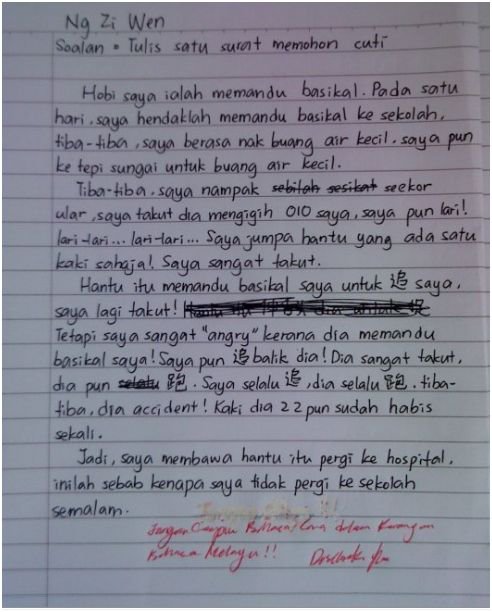 Ng Zi Wen
Soalan = Tulis satu surat memohon cuti
Hobi saya ialah memandu basikal. Pada satu
hari, saya hendaklah memandu basikal ke sekolah,
tiba-tiba, saya berasa nak buang air kecil. saya pun
ke tepi sungai untuk buang air kecil.
Tiba-tiba, saya nampak sebilah sesikat seekor
ular, saya takut dia mengigih 010 saya, saya pun lari!
lari-lari... lari-lari... Saya jumpa hantu yang ada satu
kaki sahaja! Saya sangat takut.
Hantu itu memandu basikal saya untuk 追 saya,
saya lagi takut!
Tetapi saya sangat "angry" kerana dia memandu
basikal saya! Saya pun 追 balik dia! Dia sangat takut,
dia pun 跑. Saya selalu 追, dia selalu 跑. tiba-
tiba, dia accident! Kaki dia 22 pun sudah habis
sekali.
Jadi, saya membawa hantu itu pergi ke hospital,
inilah sebab kenapa saya tidak pergi ke sekolah
semalam.
Jangan Campur Bahasa Cina dalam Karangan
Bahasa Melayu!!